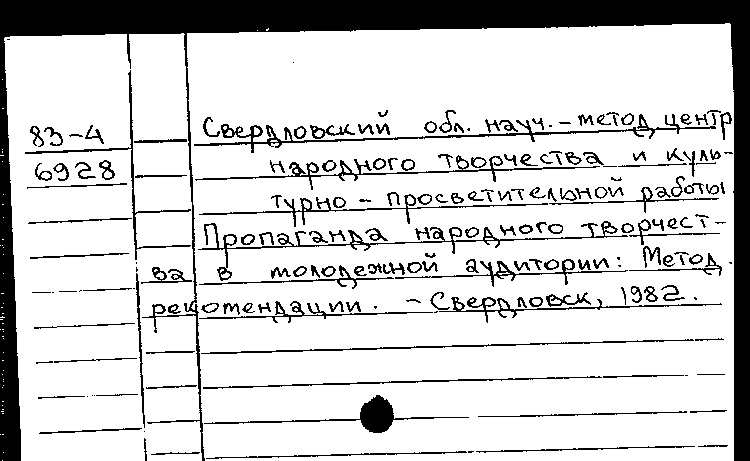 83-4
6928
Свердловский обл. науч.-метод. центр
народного творчества и куль-
турно-просветительной работы.
Пропаганда народного творчест-
ва в молодежной аудитории: Метод.
рекомендации. - Свердловск, 1982.